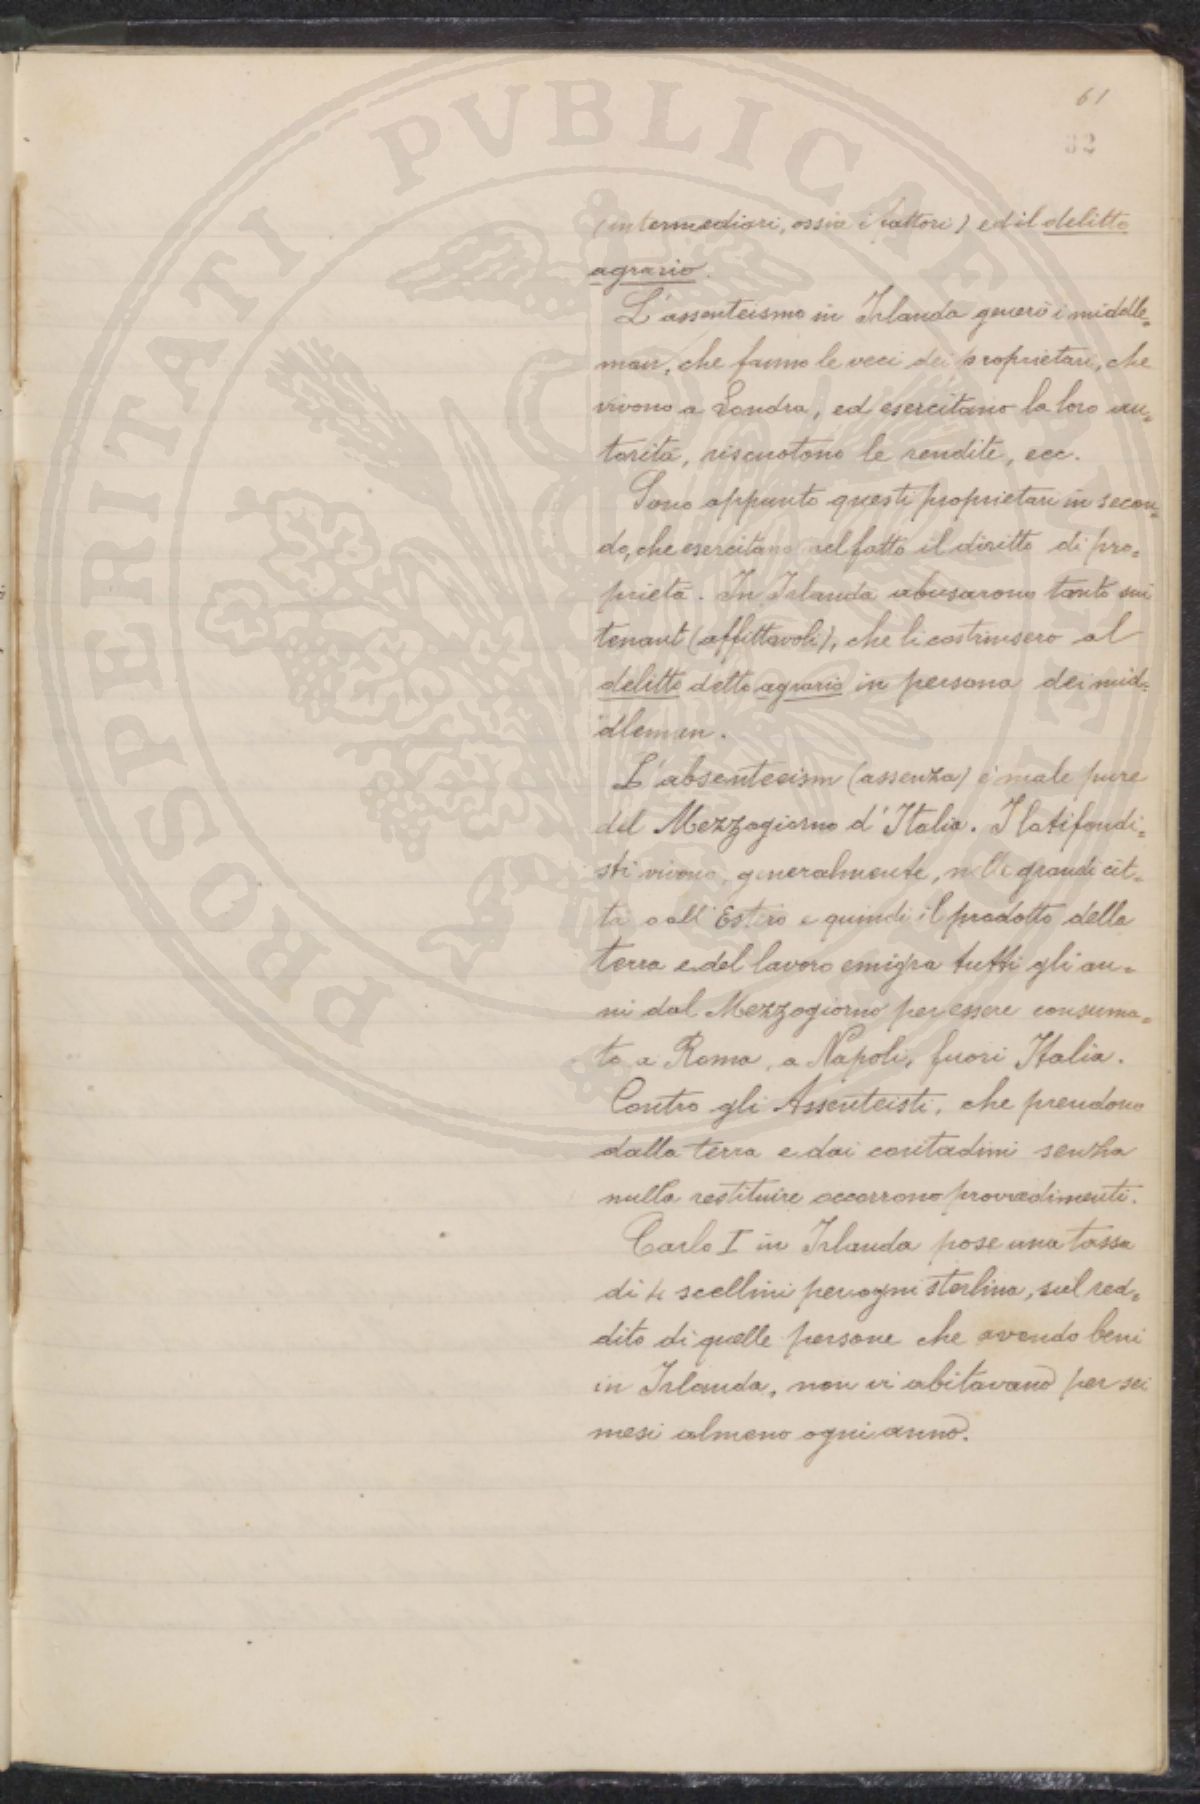 61
32
(intermediari, ossia i fattori) ed il delitto
agrario.
L'assenteismo in Irlanda generò i middle=
man, che fanno le veci dei proprietari, che
vivono a Londra, ed esercitano la loro au=
torità, riscuotono le rendite, ecc.
Sono appunto questi proprietari in secon=
do, che esercitano nel fatto il diritto di pro=
prietà. In Irlanda abusarono tanto sui
tenant (affittavoli), che li costrinsero al
delitto detto agrario in persona dei mid=
dlemen.
L'absenteeism (assenza) è male pure
del Mezzogiorno d'Italia. I latifondi=
sti vivono, generalmente, nelle grandi cit=
tà o all'Estero e quindi il prodotto della
terra e del lavoro emigra tutti gli an=
ni dal Mezzogiorno per essere consuma=
to a Roma, a Napoli, fuori Italia.
Contro gli Assenteisti, che prendono
dalla terra e dai contadini senza
nulla restituire occorrono provvedimenti.
Carlo I in Irlanda pose una tassa
di 4 scellini per ogni sterlina, sul red=
dito di quelle persone che avendo beni
in Irlanda, non vi abitavano per sei
mesi almeno ogni anno.
PROSPERITATI PVBLICAE